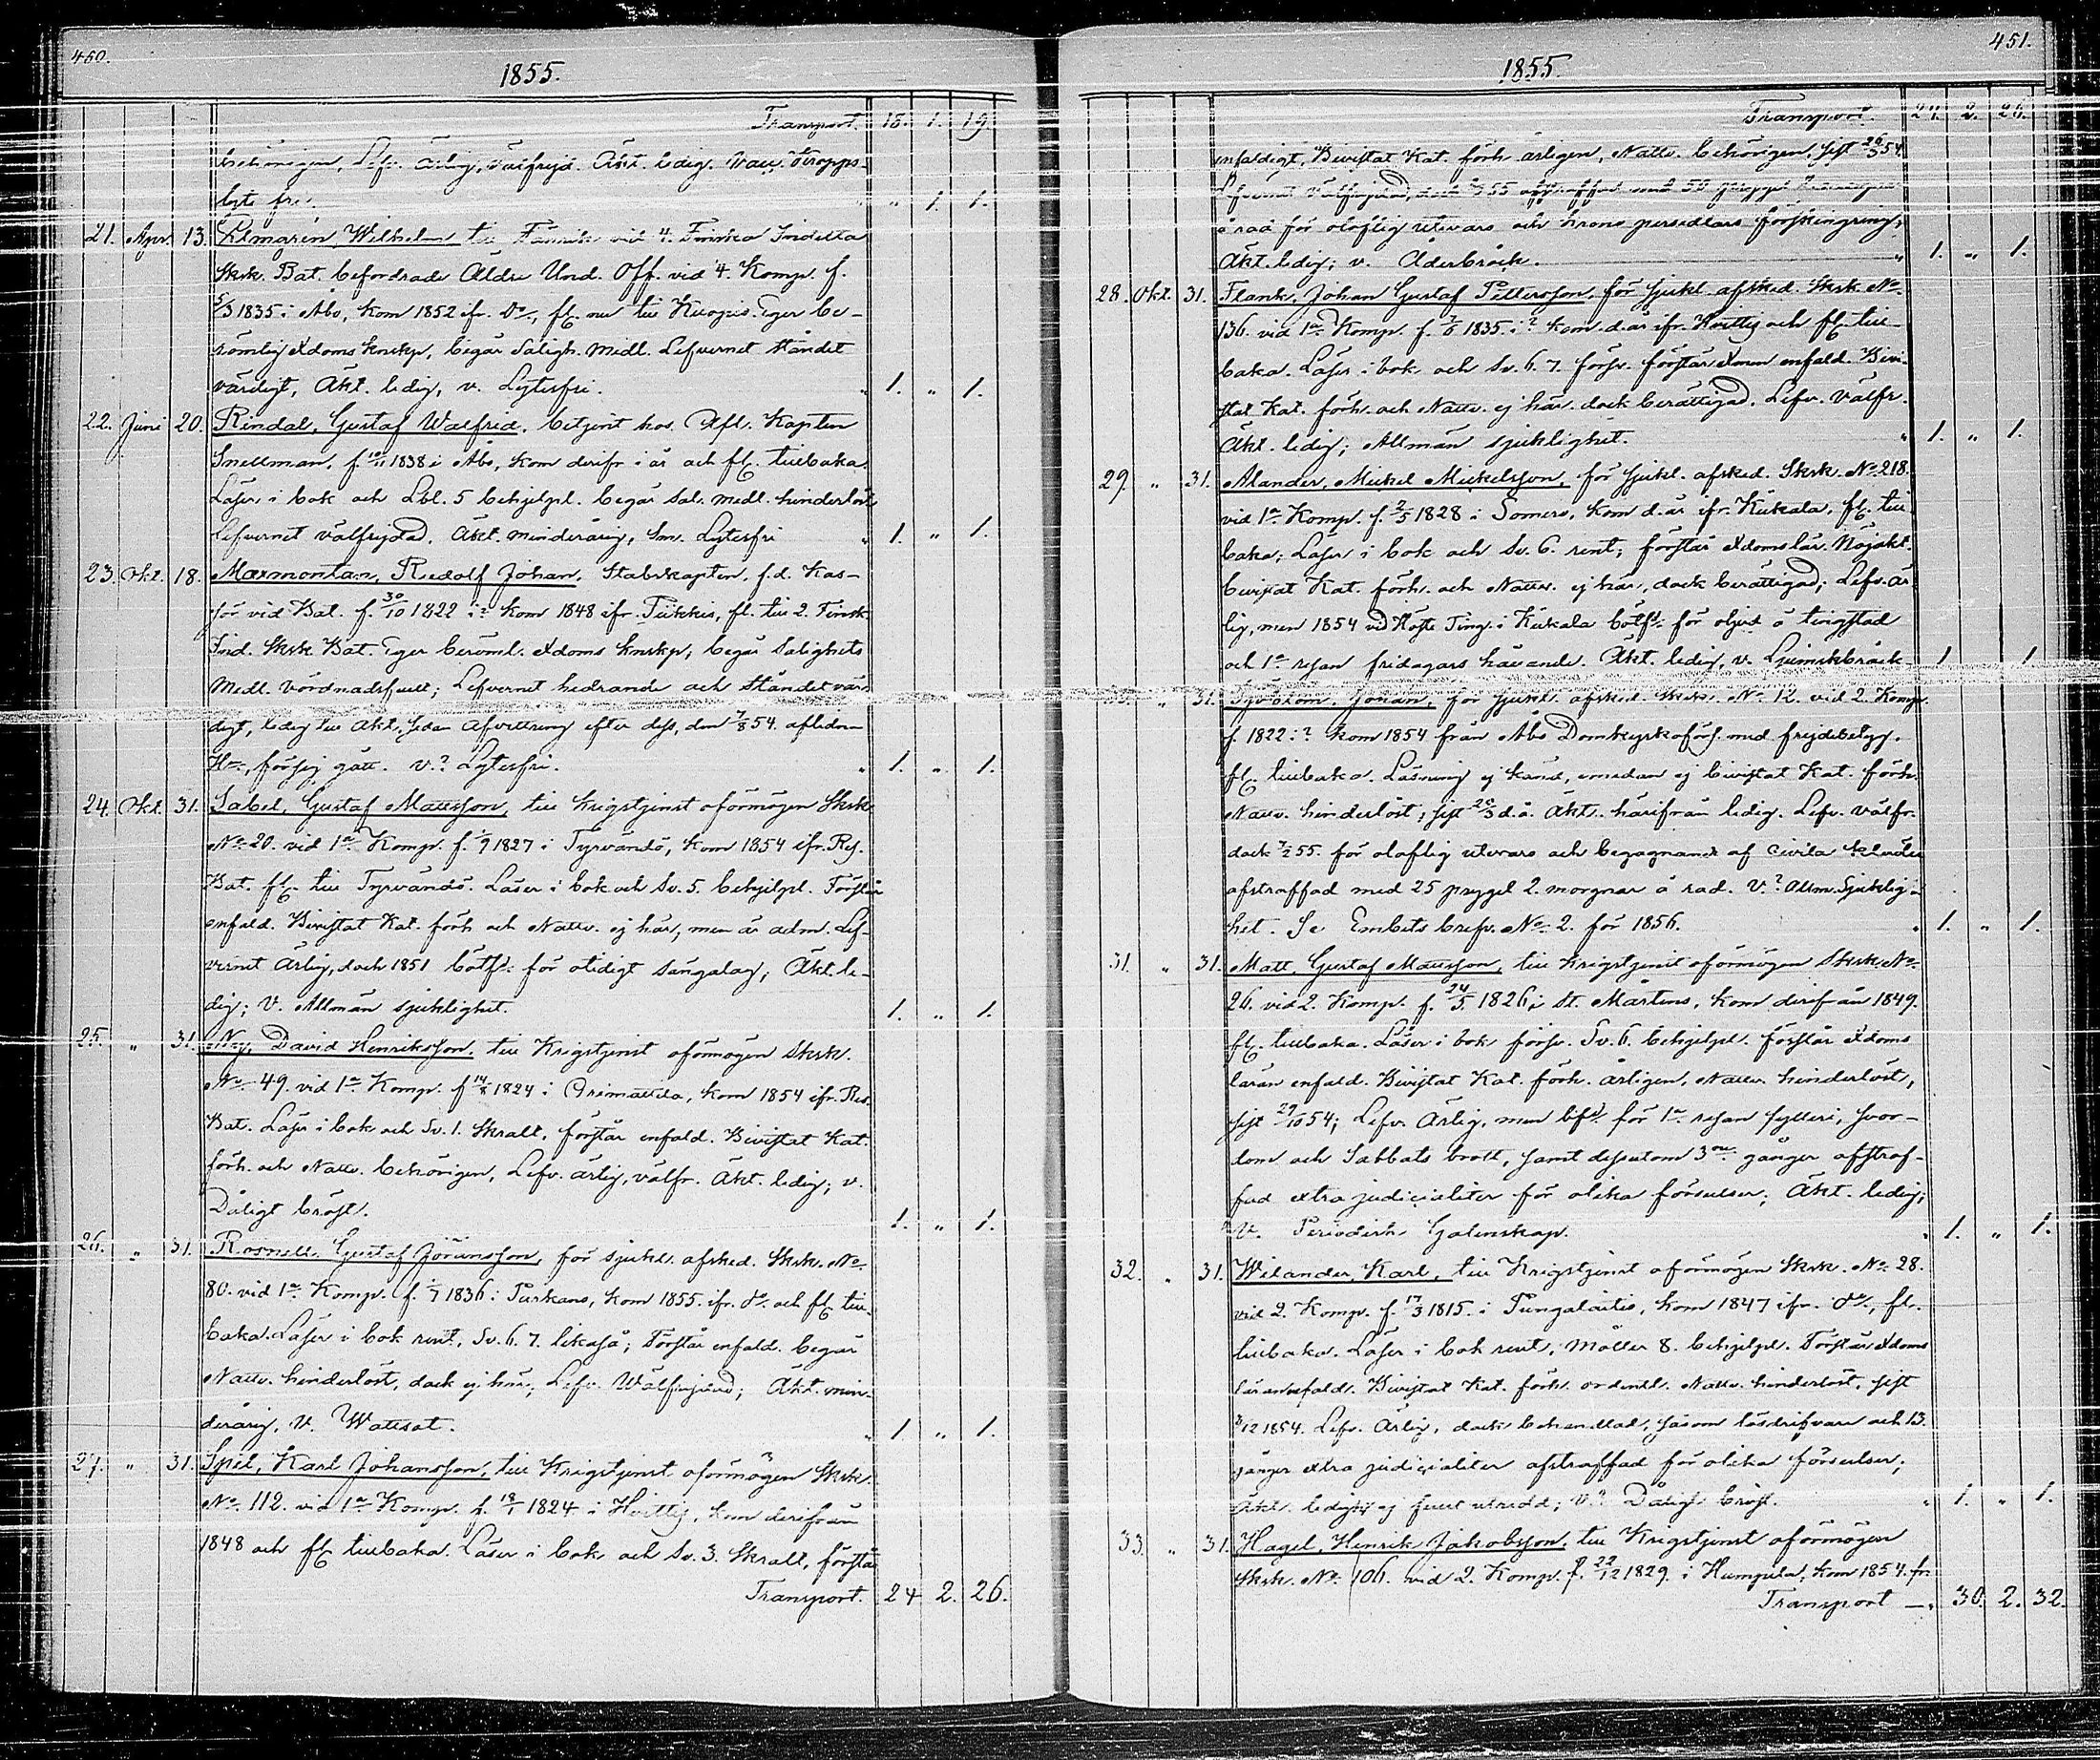 450.
1855.
Transport. 18. 1. 19.
behörigen, Lefv. Ärlig, välfrejd. Äkt. ledig. Vacc. Kropps-
lyte fri. " 1. 1.
21. Apr. 13. Elmgrén, Wilhelm till Fänrik vid 4. Finska Indelta
Skrsk. Bat. befordrade Äldre Und. Off. vid 4. Komp. f.
5/3 1835 i Åbo, kom 1852 ifr. do, fl. nu till Kuopio. Eger be-
römlig Xdoms knskp, begår Saligh. Medl. Lefvernet ståndet
värdigt, Äkt. ledig, v. Lytesfri. " 1. " 1.
22. Juni 20. Rindal, Gustaf Walfrid, betjent hos Afl. Kapten
Snellman, f. 10/11 1838 i Åbo, kom derifr. i år och fl. tillbaka.
Läser i bok och Lbl. 5 behjelpl. begår Sal. medl. hinderlöst
lefvernet välfrejdad. Äkt. minderårig, Smv. Lytesfri " 1. " 1.
23. Okt. 18. Marmontan, Rudolf Johan, Stabskapten, f.d. Kas-
sör vid Bat. f. 30/10 1822 i? kom 1848 ifr. Pikkis, fl. till 2. Finsk.
Ind. Skrsk Bat. Eger beröml. Xdoms knskp, begår Salighets
Medl. Vördnadsfullt; Lefvernet hedrande och Ståndet vär-
digt, ledig till Äkt. sedan Afvittring efter dess, den 7/8 54. aflidna
H--, försig gått. v.? Lytesfri. " 1. " 1.
24. Okt. 31. Sabel, Gustaf Mattsson, till krigstjenst oförmögen Skrsk
No 20. vid 1a Komp. f. 1/9 1827 i Tyrvändö, kom 1854 ifr. Res.
Bat. fl. till Tyrvändö. Läser i bok och Sv. 5. behjelpl. Förstår
enfald. Bevistat Kat. förh. och Nattv. ej här, men är adm. Lef-
vernet Ärlig, doch 1851 bötf. för otidigt sångalag, Äkt. le-
dig; V. Allmän sjuklighet. 1. " 1.
25. " 31. Ny, David Henriksson, till Krigstjenst oförmögen Skrsk.
No 49. vid 1a Komp. f 14/8 1824 i Orimattila, kom 1854 ifr. Res.
Bat. Läser i bok och Sv. 1. Skralt, förstår enfald. Bevistat Kat.
förh. och Nattv. behörigen, Lefv. ärlig, välfr. Äkt. ledig; v.
Dåligt bröst. 1. " 1.
26. " 31. Rosnell, Gustaf Jöransson, för sjukl. afsked. Skrsk. No
80. vid 1a Komp. f. 1/7 1836 i Parkano, kom 1855. ifr. do. och fl. till-
baka. Läser i bok rent, Sv. 6. 7. likaså; Förstår enfald. begår
Nattv. hinderlöst, dock ej här; Lefv. Wälfrejdad; Äkt. min-
derårig, V. Wattsot. " 1 " 1.
27. " 31. Spel, Karl Johansson, till Krigstjenst oförmögen Skrsk.
No 112. vid 1a Komp. f. 18/1 1824 i Hvittis, kom derifrån
1848 och fl. tillbaka. Läser i bok och Sv. 3. Skralt, förstår
Transport. 24 2. 26.
451.
1855.
Transport. 24. 2. 26.
enfaldigt, Bevistat Kat. förh. årligen, Nattv. behörigen, sist 26/3 54.
Lefvernet Välfrejdad, dock 55 afstraffad med 50 prygel
å rad för oloflig utevaro och krono persedlars förskingring,
Äkt. ledig; v. Åderbråck. " 1. " 1.
28. Okt. 31. Flank, Johan Gustaf Pettersson, för sjukl. afsked. Skrsk. No
136. vid 1a Komp. f. 7/6 1835. i? kom d. år ifr. Hvittis och fl. till-
baka. Läser i bok och Sv. 6. 7. försv. förstår Xdomen enfald. Bevi-
stat Kat. förh. och Nattv. ej här, dock berättigad. Lefv. välfr.
Äkt. ledig; Allmän sjuklighet. " 1. " 1.
29. " 31. Alander, Mickel Mickelsson, för sjukl. afsked. Skrsk. No 218.
vid 1a Komp. f. 2/5 1828 i Somero, kom d. år ifr. Kiikala, fl. till
baka; Läser i bok och Sv. 6. rent; förstår Xdomslär. Nöjakt.
bevistat Kat. förh. och Nattv. ej här, dock berättigad; Lefv. är-
lig, men 1854 vid Höste Ting i Kiikala bötf. för oljud å tingstad
och 1a resan fridagars hållande. Äkt. ledig, v. Ljumskbråck. 1 " 1.
" 31. Johan, för sjukl. afsked. Skrsk. No 12. vid 2. Komp.
f. 1822 i? kom 1854 från Åbo Domkyrkoförs. med frejdebetyg.
fl. tillbaka. Läsning ej känd, emedan ej bevistat Kat. förh.
Nattv. hinderlöst; sist 20/3 d.å. Äkt. härifrån ledig. Lefv. välfr.
dock 7/2 55. för oloflig utevaro och begagnande af civila kläder
afstraffad med 25 prygel 2. morgnar å rad. V.? Allm. Sjuklig-
het. Se Embets brefv. No 2. för 1856. " 1. " 1.
31. " 31. Matt, Gustaf Mattsson, till Krigstjenst oförmögen Skrsk. No
26. vid 2. Komp. f. 24/5. 1826 i St. Mårtens, kom derifrån 1849.
fl. tillbaka. Läser i bok försv. Sv. 6. behjelpl. förstår Xdoms
läran enfald. Bevistat Kat. förh. årligen, Nattv. hinderlöst,
sist 29/10 54; Lefv. Ärlig, men bf. för 1a resan fylleri, svor-
dom och Sabbats brott, samt dessutom 3ne gånger afstraf-
fad extra judicialiter för olika förseelser; Äkt. ledig;
V. Periodisk Galenskap. " 1. " 1.
32. " 31. Welander, Karl, till Krigstjenst oförmögen Skrsk. No 28.
vid 2. Komp. f. 17/3 1815. i Pungalaitio, kom 1847 ifr. do, fl.
tillbaka. Läser i bok rent, Möller 8. behjelpl. Förstår Xdoms
läran enfald. Bevistat Kat. förh. ordentl. Nattv. hinderlöst, sist
/12 1854. Lefv. Ärlig, dock behandlad, såsom lösdrifvare och 13.
gånger extra judicialiter afstraffad för olika förseelser;
Äkt. ledighet ej fullt utredd; V.? Dåligt bröst. " 1. " 1.
33. " 31. Hagel, Henrik Jakobsson, till Krigstjenst oförmögen
Skrsk. No. 106. vid 2. Komp. f. 22/12 1829. i Humpila, kom 1854. fr.
Transport — 30. 2. 32.